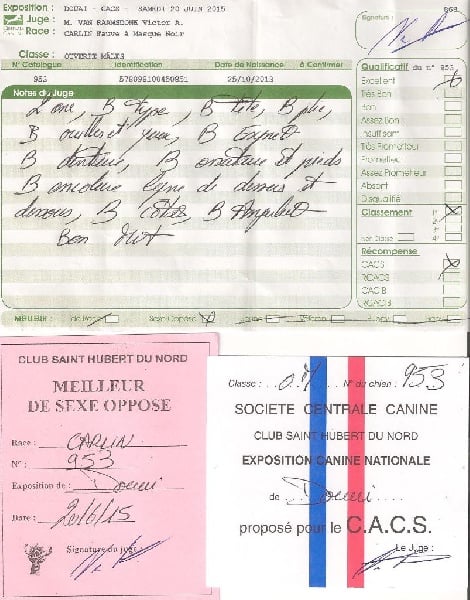 Exposition : DOUAI - CACS - SAMEDI 20 JUIN 2015
Juge : M. VAN RAAMSDONK Victor A.
Race : CARLIN Fauve à Masque Noir
Classe : OUVERTE MÂLES
Signature :
N° Catalogue Identification Date de Naissance à Confirmer
953 25/10/2013
Notes du Juge
B type, B tête,
B yeux, B
B denture, B ossature et pieds
B ligne de dessus et
dessous, B
Bon
Qualificatif du n° 953
Excellent
Très Bon
Bon
Assez Bon
Insuffisant
Très Prometteur
Prometteur
Assez Prometteur
Absent
Disqualifié
Classement 1° 2°
Non Classé 3° 4°
Récompense
CACS
RCACS
CACIB
RCACIB
MEILLEUR : de Race Sexe Opposé Jeune Vétéran Puppy
CLUB SAINT HUBERT DU NORD
MEILLEUR
DE SEXE OPPOSE
Race : CARLIN
N° : 953
Exposition de : Douai
Date : 20/6/15
Signature du juge :
Classe : N° du chien : 953
SOCIETE CENTRALE CANINE
CLUB SAINT HUBERT DU NORD
EXPOSITION CANINE NATIONALE
de Douai
proposé pour le C.A.C.S.
Le Juge :